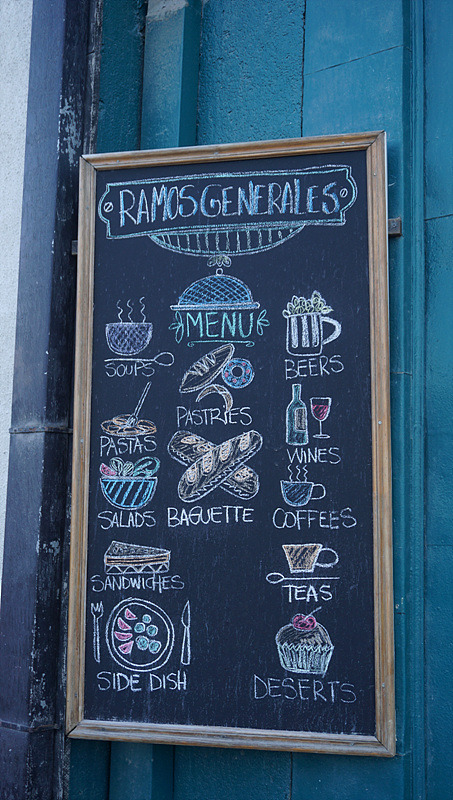 RAMOS GENERALES
MENU
SOUPS
PASTAS
SALADS
SANDWICHES
SIDE DISH
PASTRIES
BAGUETTE
BEERS
WINES
COFFEES
TEAS
DESERTS